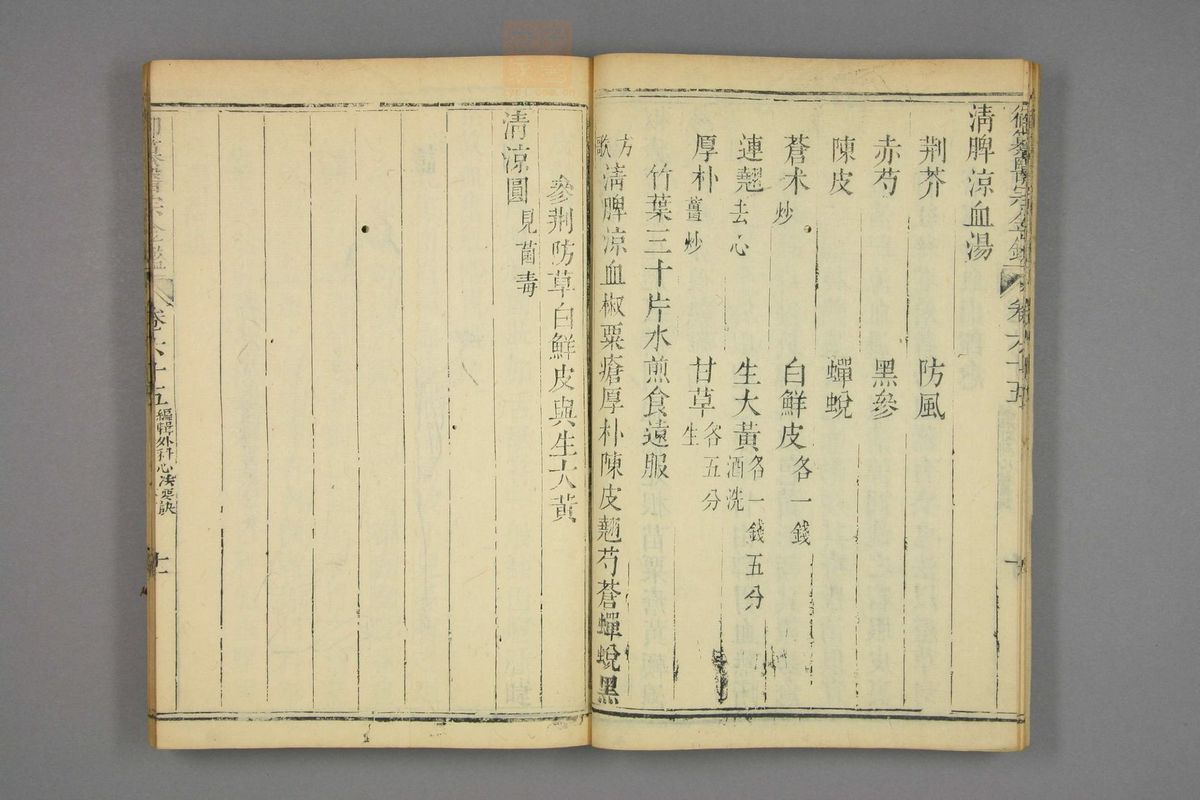 御纂醫宗金鑑 卷六十五 十
清脾涼血湯
荆芥 防風
赤芍 黑參
陳皮 蟬蛻
蒼朮炒 白鮮皮各一錢
連翹去心 生大黃酒洗各一錢五分
厚朴薑炒 甘草生各五分
竹葉三十片水煎食遠服
方歌 清脾涼血椒粟瘡厚朴陳皮翹芍蒼蟬蛻黑
參荆防草白鮮皮與生大黃
清涼圓見菌毒
御纂醫宗金鑑 卷六十五 編輯外科心法要訣 十一